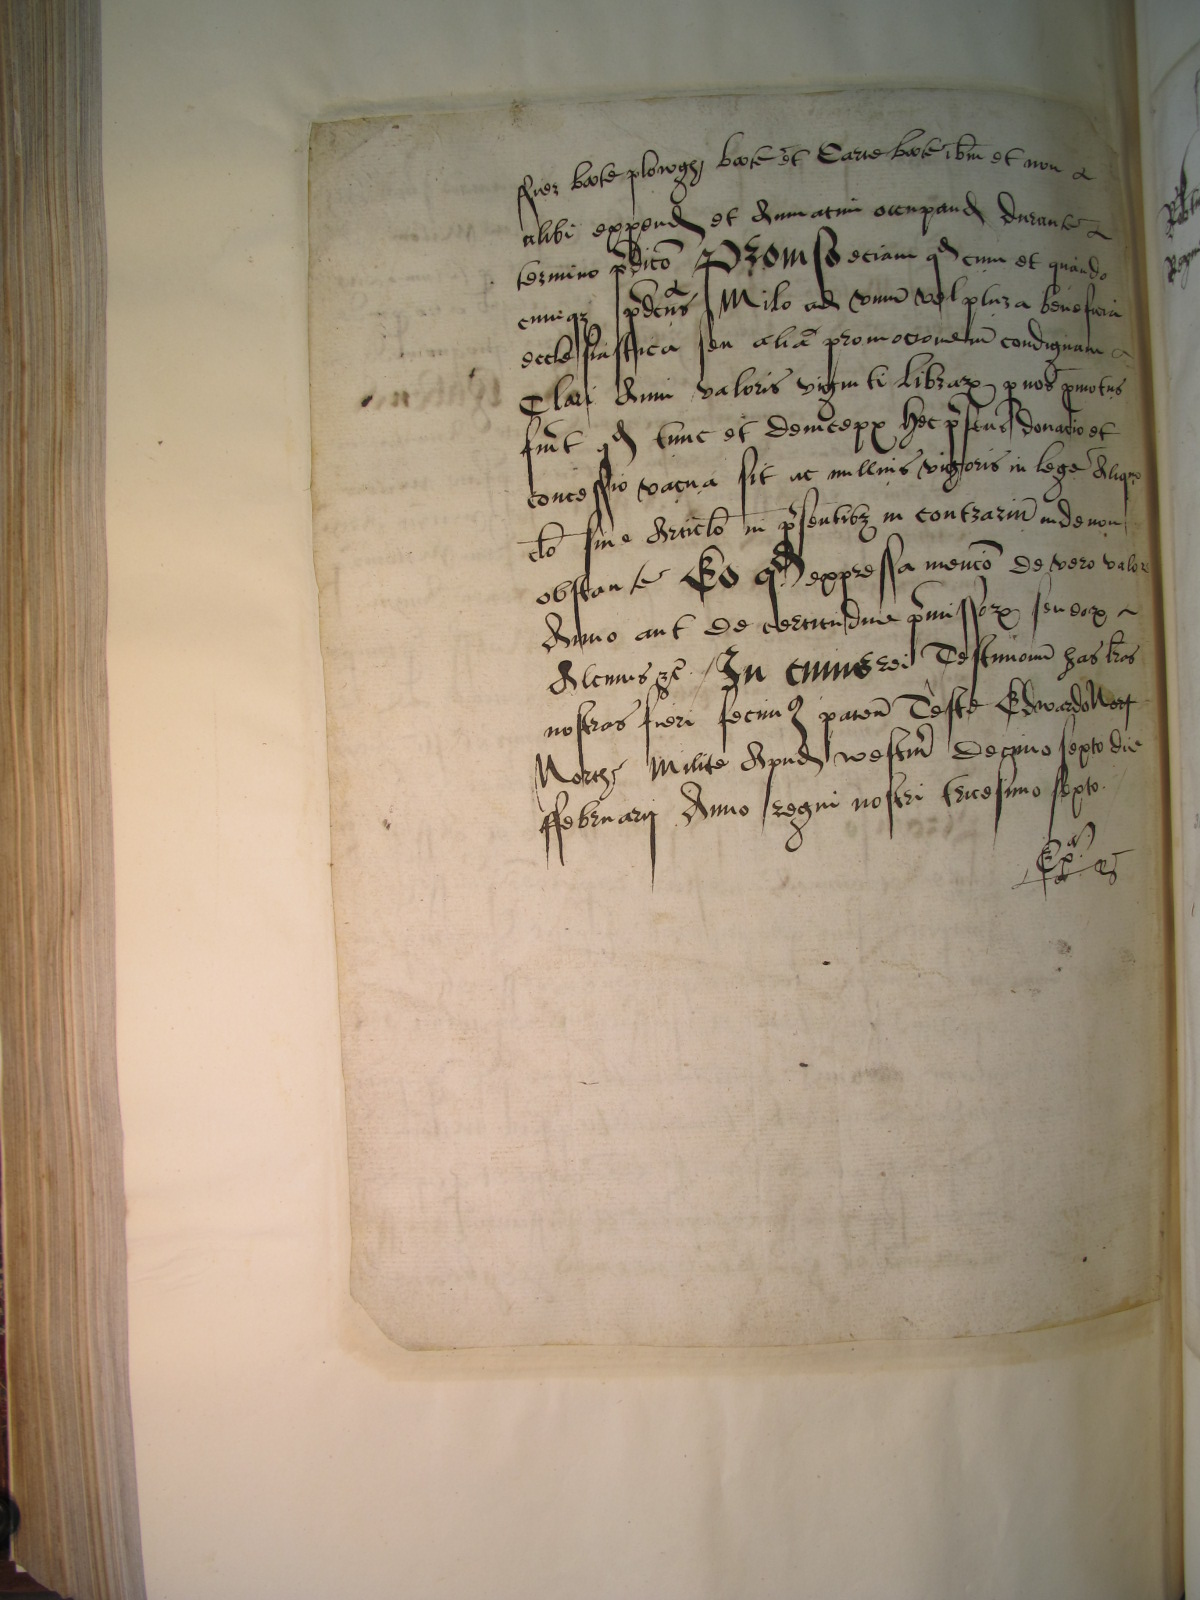 ffier boote plowgh boote et Carte boote ibm et non
alibi expend et Annuatim occupand durante
termino pdico Promiso eciam qd cum et quando
cumqz pdcus Milo ad vnum vel plura beneficia
ecclesiastica seu alia promocionem condignam
Clari Anni valoris viginti librarz p nos pmotus
fuit qd tunc et deincepx hec psens donacio et
concessio vacua sit ac nullius vigoris in lege Aliquo
clo siue Articlo in psentibz in contrarium inde non
obstante Eo qd expressa mencō de vero valore
Anno aut de certitudine pmissorz seu eorz
Alcuius zc In cuius rei Testimonium has lras
nostras fieri fecimus paten Teste Edwardo
North Milite Apud westm decimo sexto die
ffebruarij Anno regni nostri tricesimo sexto
Exr